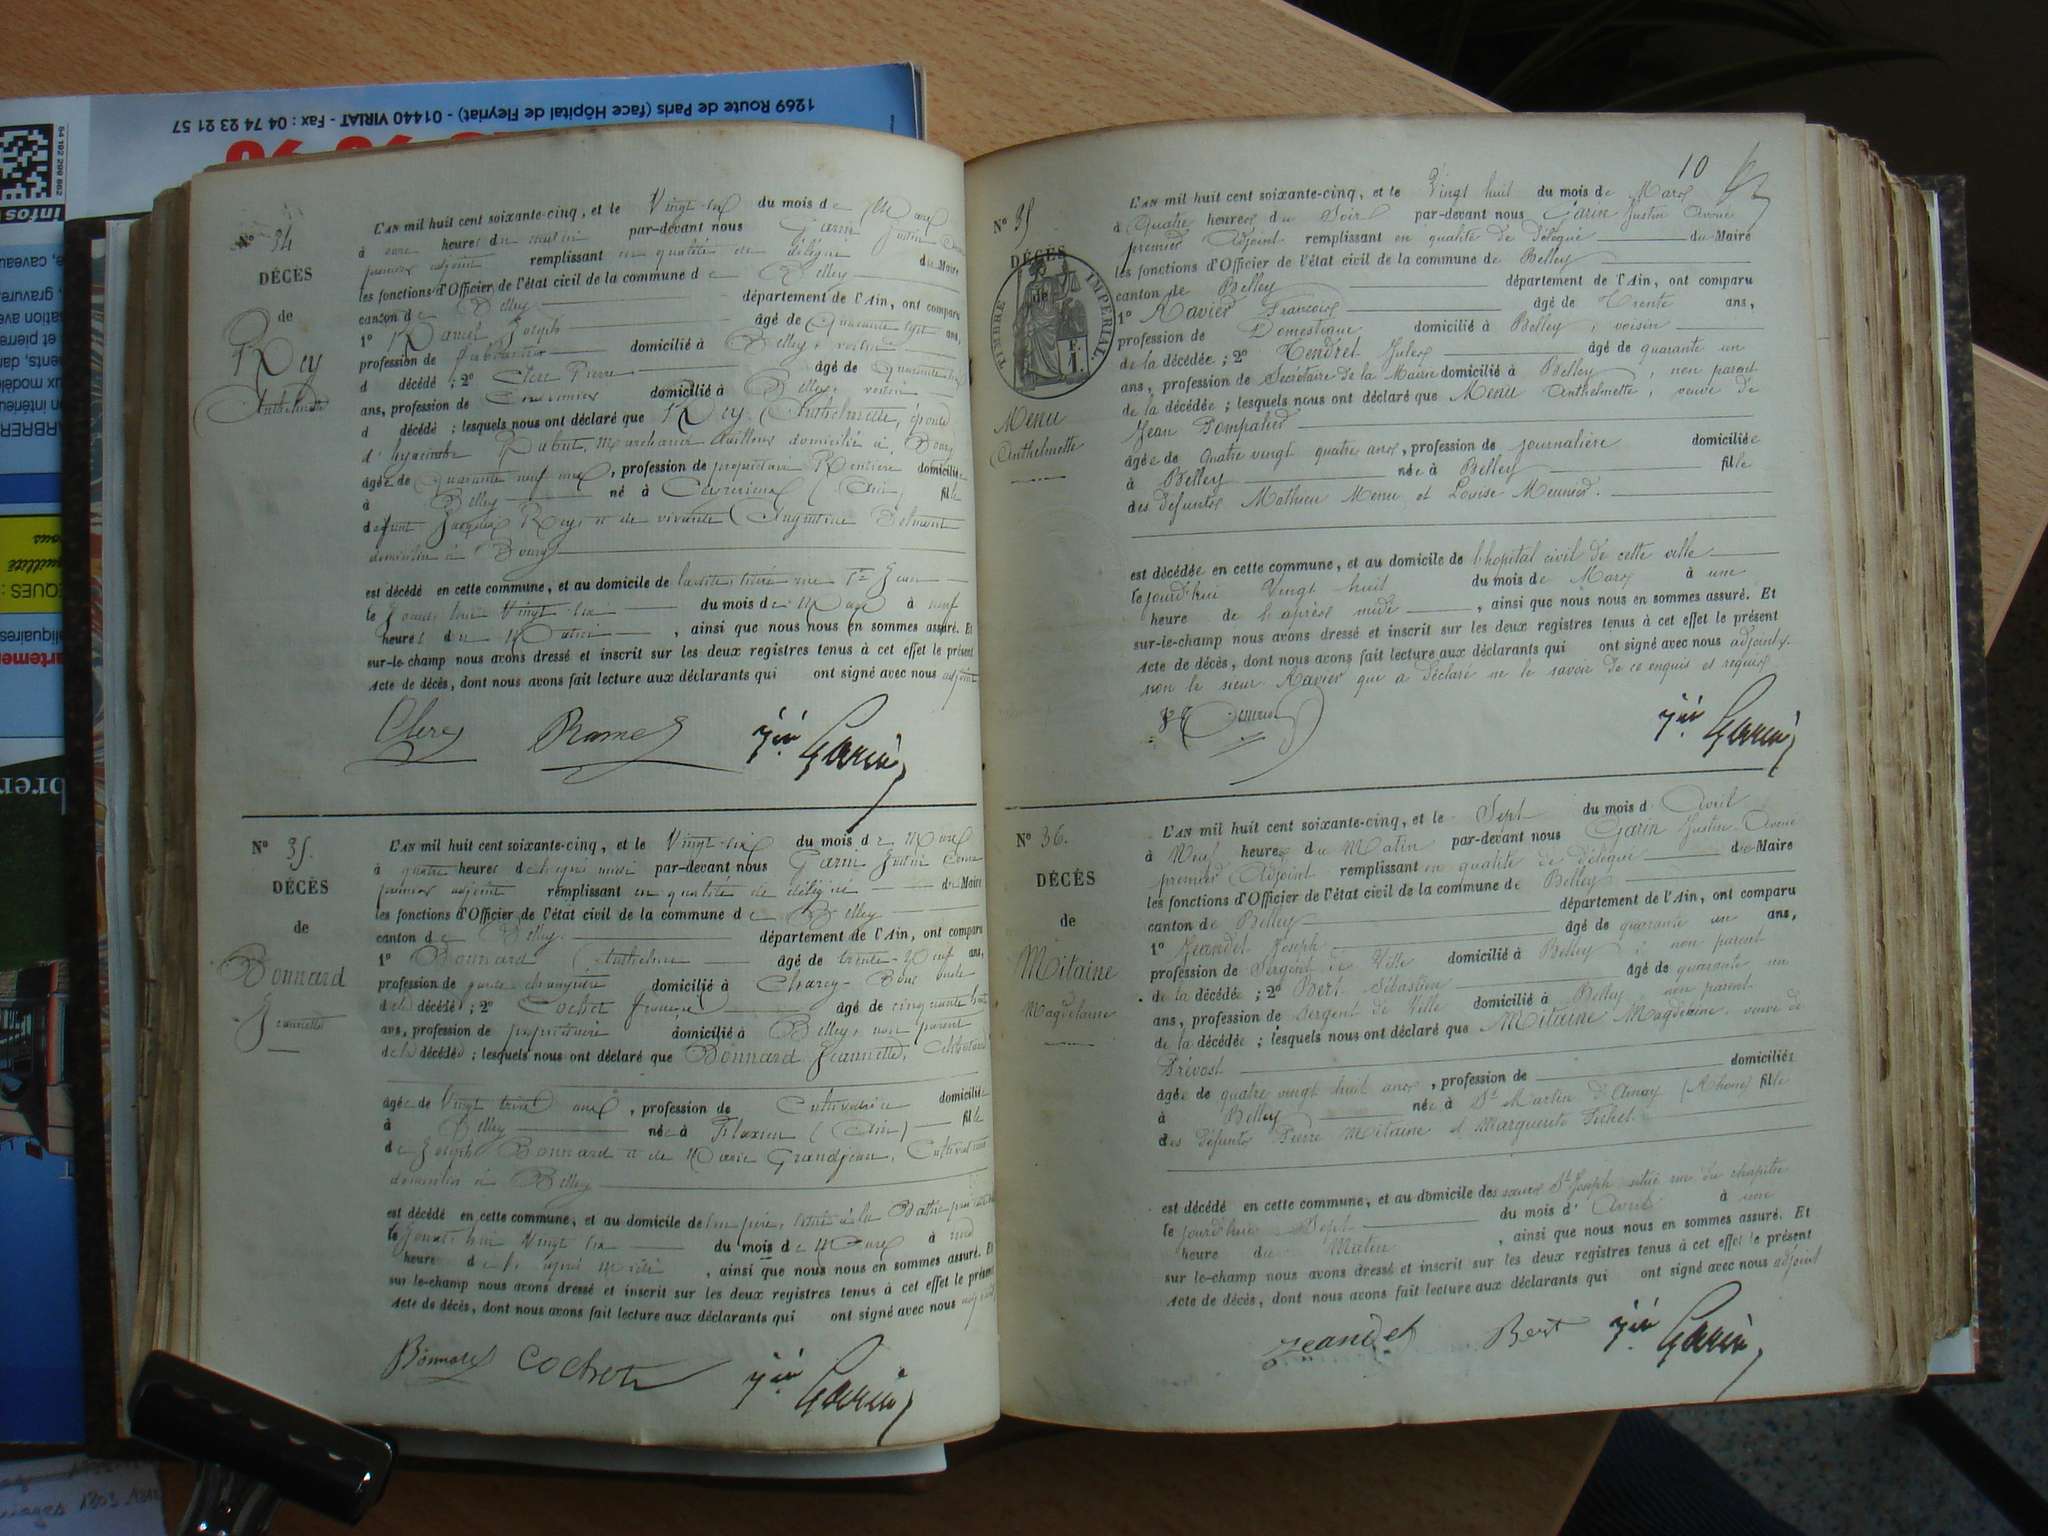 1269 Route de Paris (face Hôpital de Fleyriat) - 01440 VIRIAT - Fax : 04 74 23 21 57
infos
N° 34
DÉCÈS
de
Rey
Anthelmette
L'AN mil huit cent soixante-cinq, et le Vingt-six du mois de Mars
à heures du matin par-devant nous Garin Justin Avoué
premier adjoint remplissant en qualité de délégué du Maire
les fonctions d'Officier de l'état civil de la commune de Belley
canton de Belley département de l'Ain, ont comparu
1° Joseph âgé de Quarante sept ans,
profession de domicilié à Belley, voisin
d décédé ; 2° Clerc Pierre âgé de Quarante
ans, profession de domicilié à Belley, voisin
d décédé ; lesquels nous ont déclaré que Rey Anthelmette, épouse
d'hyacinthe Rabut, marchand tailleur domicilié à Bourg
âgée de Quarante neuf ans, profession de propriétaire Rentière domiciliée
à Belley né à Ceyzérieux (Ain) fille
de funt Jacques Rey et de vivante Augustine Belmont
domiciliée à Bourg
est décédé en cette commune, et au domicile de située rue St Jean
le Jourd'hui Vingt-six du mois de Mars à neuf
heures du Matin, ainsi que nous nous en sommes assuré. Et
sur-le-champ nous avons dressé et inscrit sur les deux registres tenus à cet effet le présent
Acte de décès, dont nous avons fait lecture aux déclarants qui ont signé avec nous adjoint
Clerc Jin Garin
N° 35.
DÉCÈS
de
Bonnard
Jeannette
L'AN mil huit cent soixante-cinq, et le Vingt-six du mois de Mars
à quatre heures de l'après midi par-devant nous Garin Justin Avoué
premier adjoint remplissant en qualité de délégué du Maire
les fonctions d'Officier de l'état civil de la commune de Belley
canton de Belley département de l'Ain, ont comparu
1° Bonnard Anthelme âgé de trente-Neuf ans,
profession de garde champêtre domicilié à Charcy-Bons oncle
de la décédée ; 2° Cochet françois âgé de cinquante huit
ans, profession de propriétaire domicilié à Belley, non parent
de la décédée ; lesquels nous ont déclaré que Bonnard Jeannette, Célibataire
âgée de Vingt trois ans, profession de Cultivatrice domiciliée
à Belley née à Flaxieu (Ain) fille
de Joseph Bonnard et de Marie Grandjean, Cultivateurs
domiciliés à Belley
est décédé en cette commune, et au domicile de son père, situé à la
le Jourd'hui Vingt six du mois de Mars à une
heure de l'après Midi, ainsi que nous nous en sommes assuré. Et
sur le-champ nous avons dressé et inscrit sur les deux registres tenus à cet effet le présent
Acte de décès, dont nous avons fait lecture aux déclarants qui ont signé avec nous adjoint
Bonnard Cochet Jin Garin
10
N° 35
DÉCÈS
de
TIMBRE IMPÉRIAL.
F.
1.
Menu
Anthelmette
L'AN mil huit cent soixante-cinq, et le Vingt huit du mois de Mars
à Quatre heures du Soir par-devant nous Garin Justin Avoué
premier Adjoint remplissant en qualité de délégué du Maire
les fonctions d'Officier de l'état civil de la commune de Belley
canton de Belley département de l'Ain, ont comparu
1° Ravier François âgé de Trente ans,
profession de Domestique domicilié à Belley, voisin
de la décédée ; 2° Tendret Jules âgé de quarante un
ans, profession de Secrétaire de la Mairie domicilié à Belley, non parent
de la décédée ; lesquels nous ont déclaré que Menu Anthelmette, veuve de
Jean Pompalier
âgée de quatre vingt quatre ans, profession de journalière domiciliée
à Belley née à Belley fille
des défunts Mathieu Menu et Louise Meunier.
est décédée en cette commune, et au domicile de l'hopital civil de cette ville
le jourd'hui Vingt huit du mois de Mars à une
heure de l'après midi, ainsi que nous nous en sommes assuré. Et
sur-le-champ nous avons dressé et inscrit sur les deux registres tenus à cet effet le présent
Acte de décès, dont nous avons fait lecture aux déclarants qui ont signé avec nous adjoint.
non le sieur Ravier que a déclaré ne le savoir de ce enquis et requis
Jin Garin
N° 36.
DÉCÈS
de
Mitaine
Magdelaine
L'AN mil huit cent soixante-cinq, et le Sept du mois d'Avril
à Neuf heures du Matin par-devant nous Garin Justin Avoué
premier Adjoint remplissant en qualité de délégué du Maire
les fonctions d'Officier de l'état civil de la commune de Belley
canton de Belley département de l'Ain, ont comparu
1° Jeandet Joseph âgé de quarante un ans,
profession de Sergent de Ville domicilié à Belley, non parent
de la décédée ; 2° Bert Sébastien âgé de quarante un
ans, profession de sergent de Ville domicilié à Belley non parent
de la décédée ; lesquels nous ont déclaré que Mitaine Magdelaine, veuve de
Prévost
âgée de quatre vingt huit ans, profession de domiciliée
à Belley née à St Martin d'Ainay (Rhône) fille
des défunts Pierre Mitaine et Marguerite Fichet
est décédé en cette commune, et au domicile des soeurs St Joseph situé rue du chapitre
le jourd'hui Sept du mois d'Avril à une
heure du Matin, ainsi que nous nous en sommes assuré. Et
sur le-champ nous avons dressé et inscrit sur les deux registres tenus à cet effet le présent
Acte de décès, dont nous avons fait lecture aux déclarants qui ont signé avec nous adjoint
Jeandet Bert Jin Garin